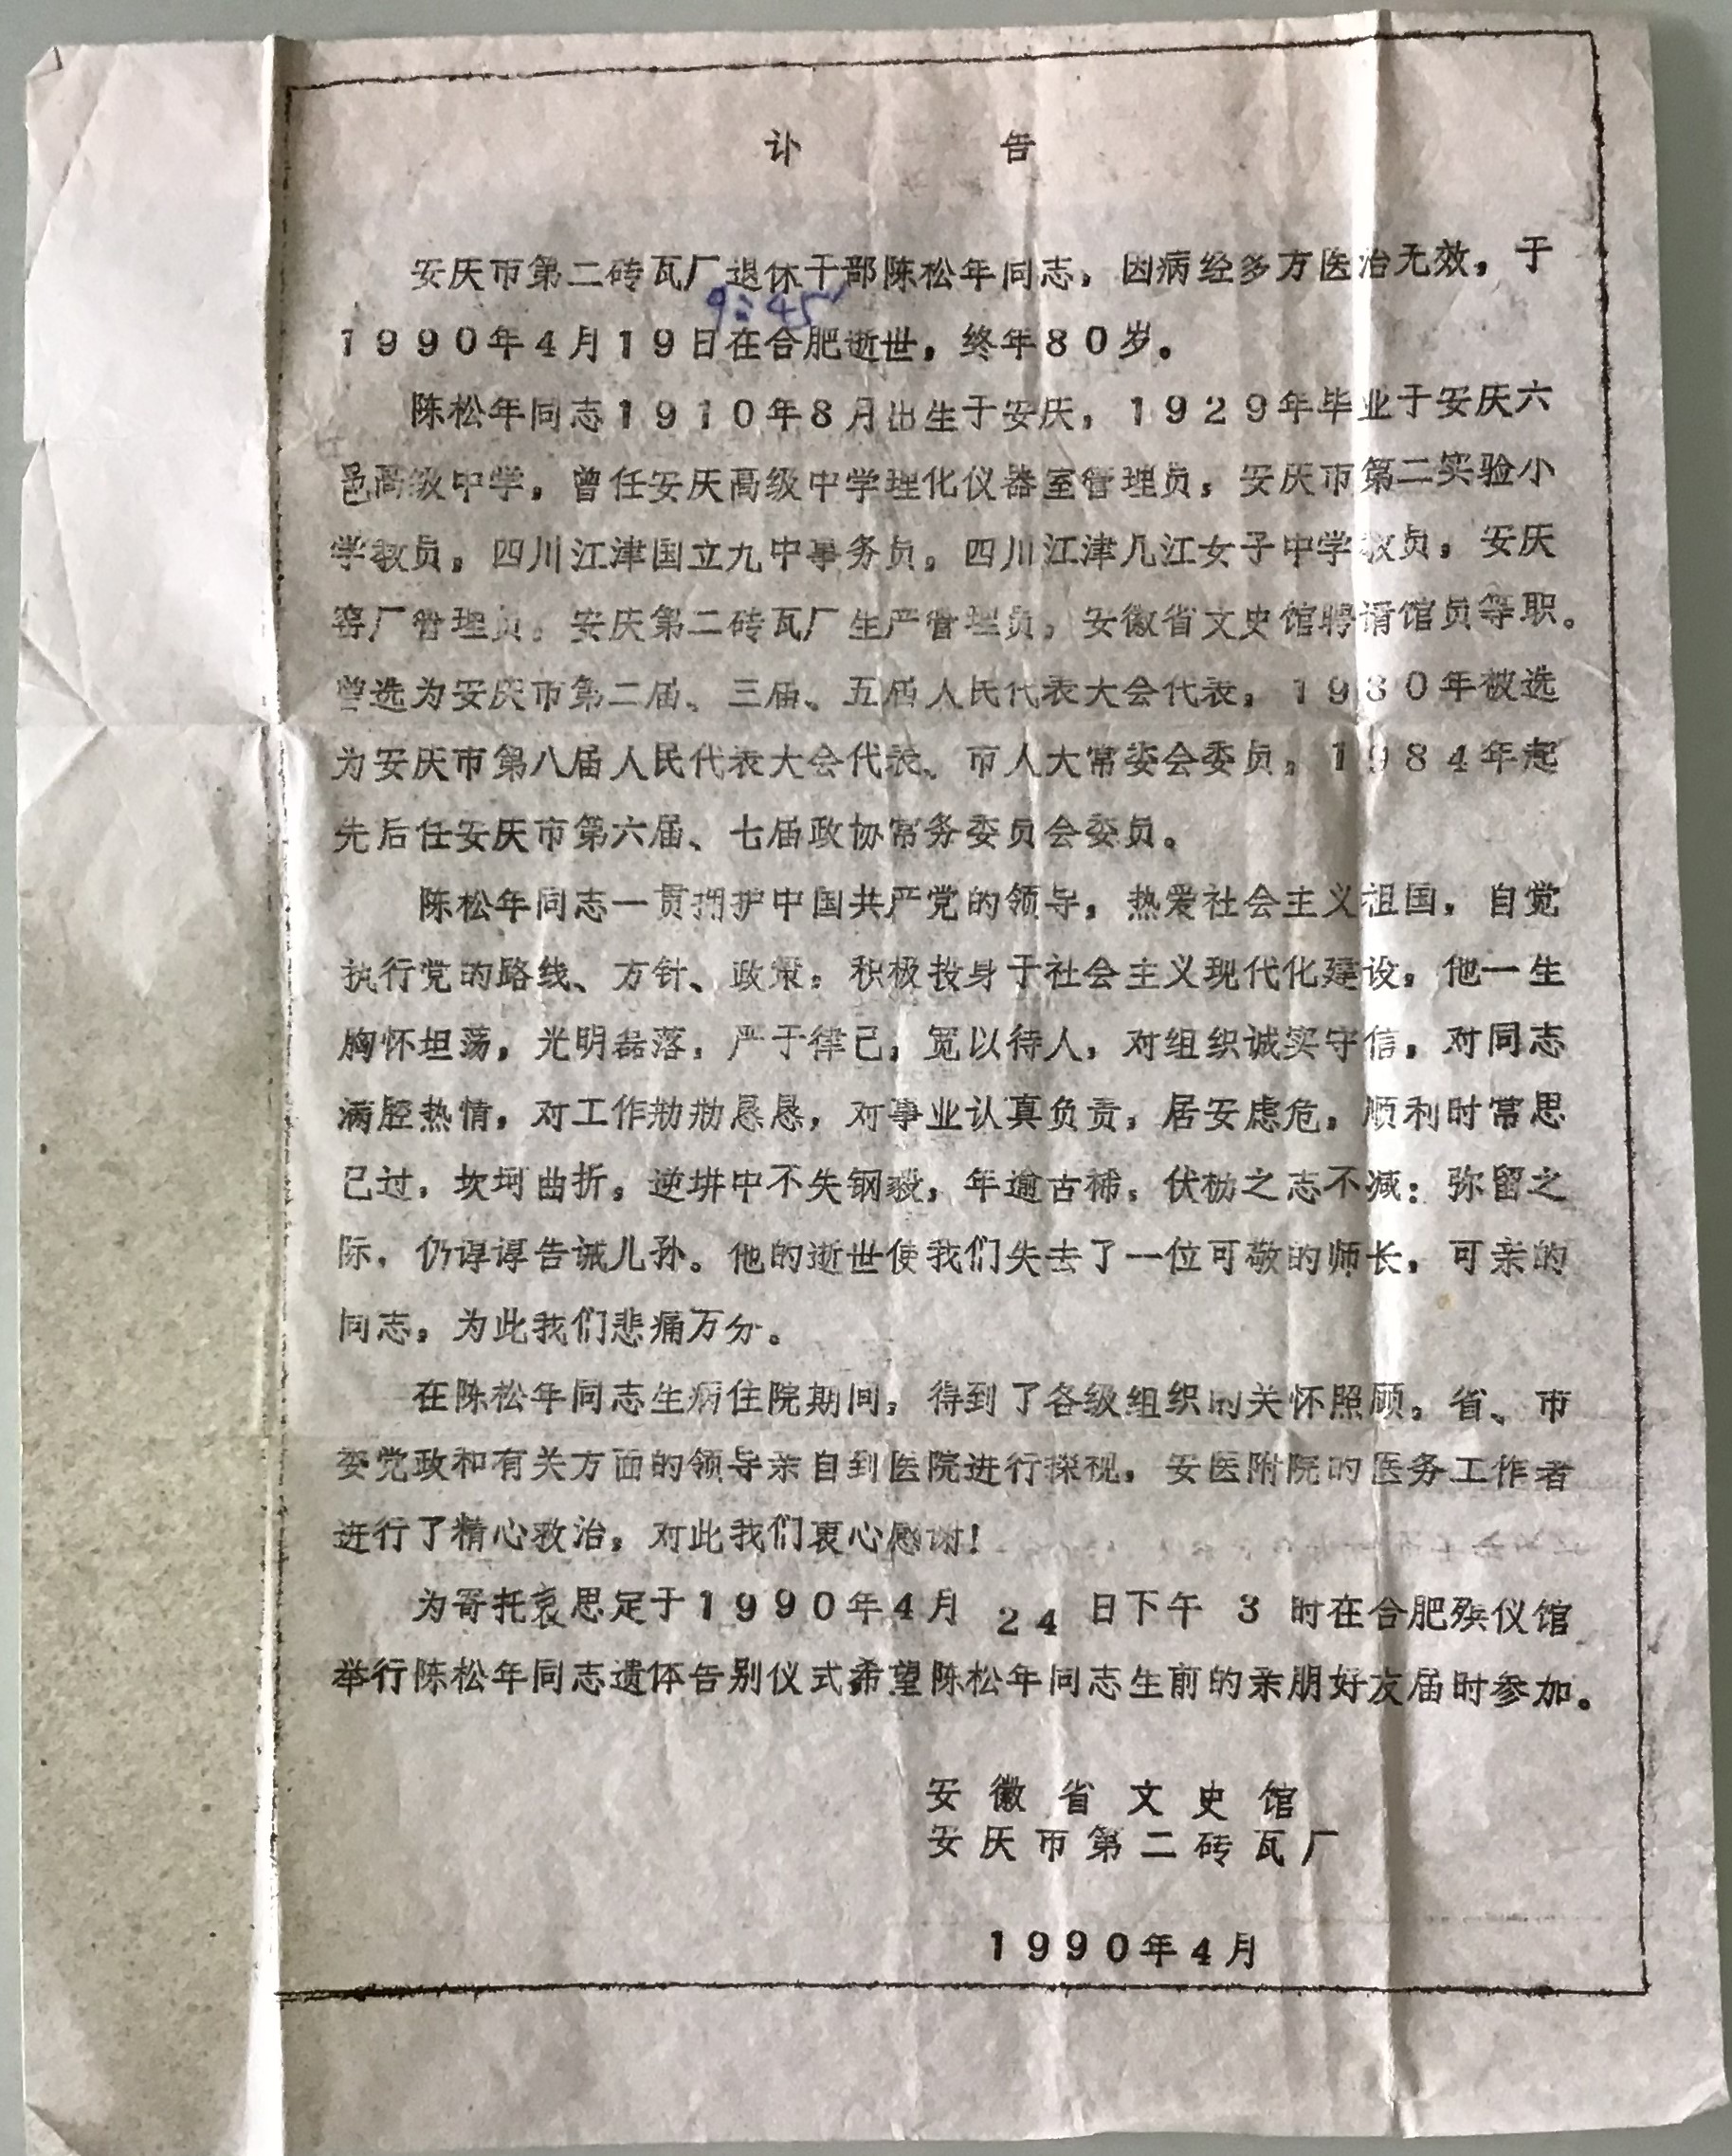 讣 告
安庆市第二砖瓦厂退休干部陈松年同志，因病经多方医治无效，于
9:45
1990年4月19日在合肥逝世，终年80岁。
陈松年同志1910年8月出生于安庆，1929年毕业于安庆六
邑高级中学，曾任安庆高级中学理化仪器室管理员，安庆市第二实验小
学教员，四川江津国立九中事务员，四川江津几江女子中学教员，安庆
窑厂管理员，安庆第二砖瓦厂生产管理员，安徽省文史馆聘请馆员等职。
曾选为安庆市第二届、三届、五届人民代表大会代表，1980年被选
为安庆市第八届人民代表大会代表、市人大常委会委员，1984年起
先后任安庆市第六届、七届政协常务委员会委员。
陈松年同志一贯拥护中国共产党的领导，热爱社会主义祖国，自觉
执行党的路线、方针、政策，积极投身于社会主义现代化建设，他一生
胸怀坦荡，光明磊落，严于律己，宽以待人，对组织诚实守信，对同志
满腔热情，对工作勤勤恳恳，对事业认真负责，居安虑危，顺利时常思
己过，坎坷曲折，逆境中不失钢毅，年逾古稀，伏枥之志不减；弥留之
际，仍谆谆告诫儿孙。他的逝世使我们失去了一位可敬的师长，可亲的
同志，为此我们悲痛万分。
在陈松年同志生病住院期间，得到了各级组织的关怀照顾，省、市
委党政和有关方面的领导亲自到医院进行探视，安医附院的医务工作者
进行了精心救治，对此我们衷心感谢！
为寄托哀思定于1990年4月 24 日下午 3 时在合肥殡仪馆
举行陈松年同志遗体告别仪式希望陈松年同志生前的亲朋好友届时参加。
安徽省文史馆
安庆市第二砖瓦厂
1990年4月